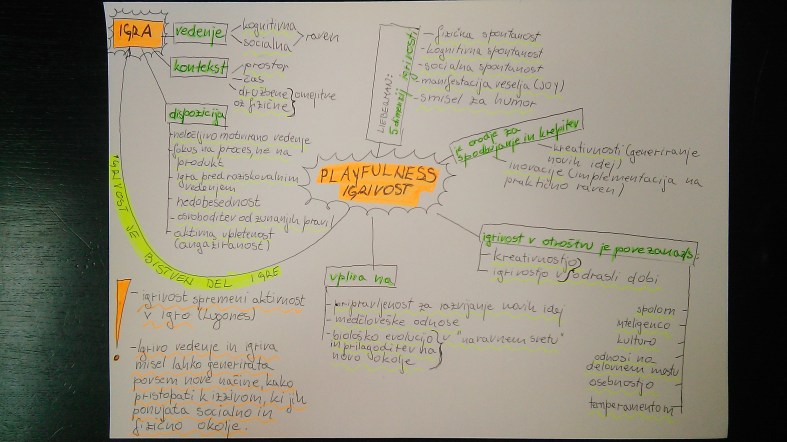 IGRA
vedenje
kognitivna
socialna
raven
kontekst
prostor
čas
družbene
oz fizične
omejitve
dispozicija
fokus na proces, ne na
produkt
igra pred raziskovalnim
vedenjem
nedobesednost
osvoboditev od zunanjih pravil
aktivna vpletenost
(angažiranost)
IGRIVOST JE BISTVEN DEL IGRE
LIEBERMAN:
5 dimenzij igrivosti
fizična spontanost
kognitivna spontanost
socialna spontanost
manifestacija veselja (JOY)
smisel za humor
PLAYFULNESS
IGRIVOST
je orodje za
spodbujanje in krepitev
kreativnosti (generiranje
novih idej)
inovacije (implementacija na
praktično raven)
igrivost v otroštvu je povezana z/s
kreativnostjo
igrivostjo v odrasli dobi
spolom
inteligenco
kulturo
odnosi na
delovnem mestu
osebnostjo
temperamentom
vpliva na
pripravljenost za razvijanje novih idej
medčloveške odnose
biološko evolucijo
in prilagoditev na
novo okolje
v "naravnem svetu"
!
- igrivost spremeni aktivnost
v igro (Lugones)
- Igrivo vedenje in igriva
misel lahko generirata
povsem nove načine, kako
pristopati k izzivom, ki jih
ponujata socialno in
fizično okolje.